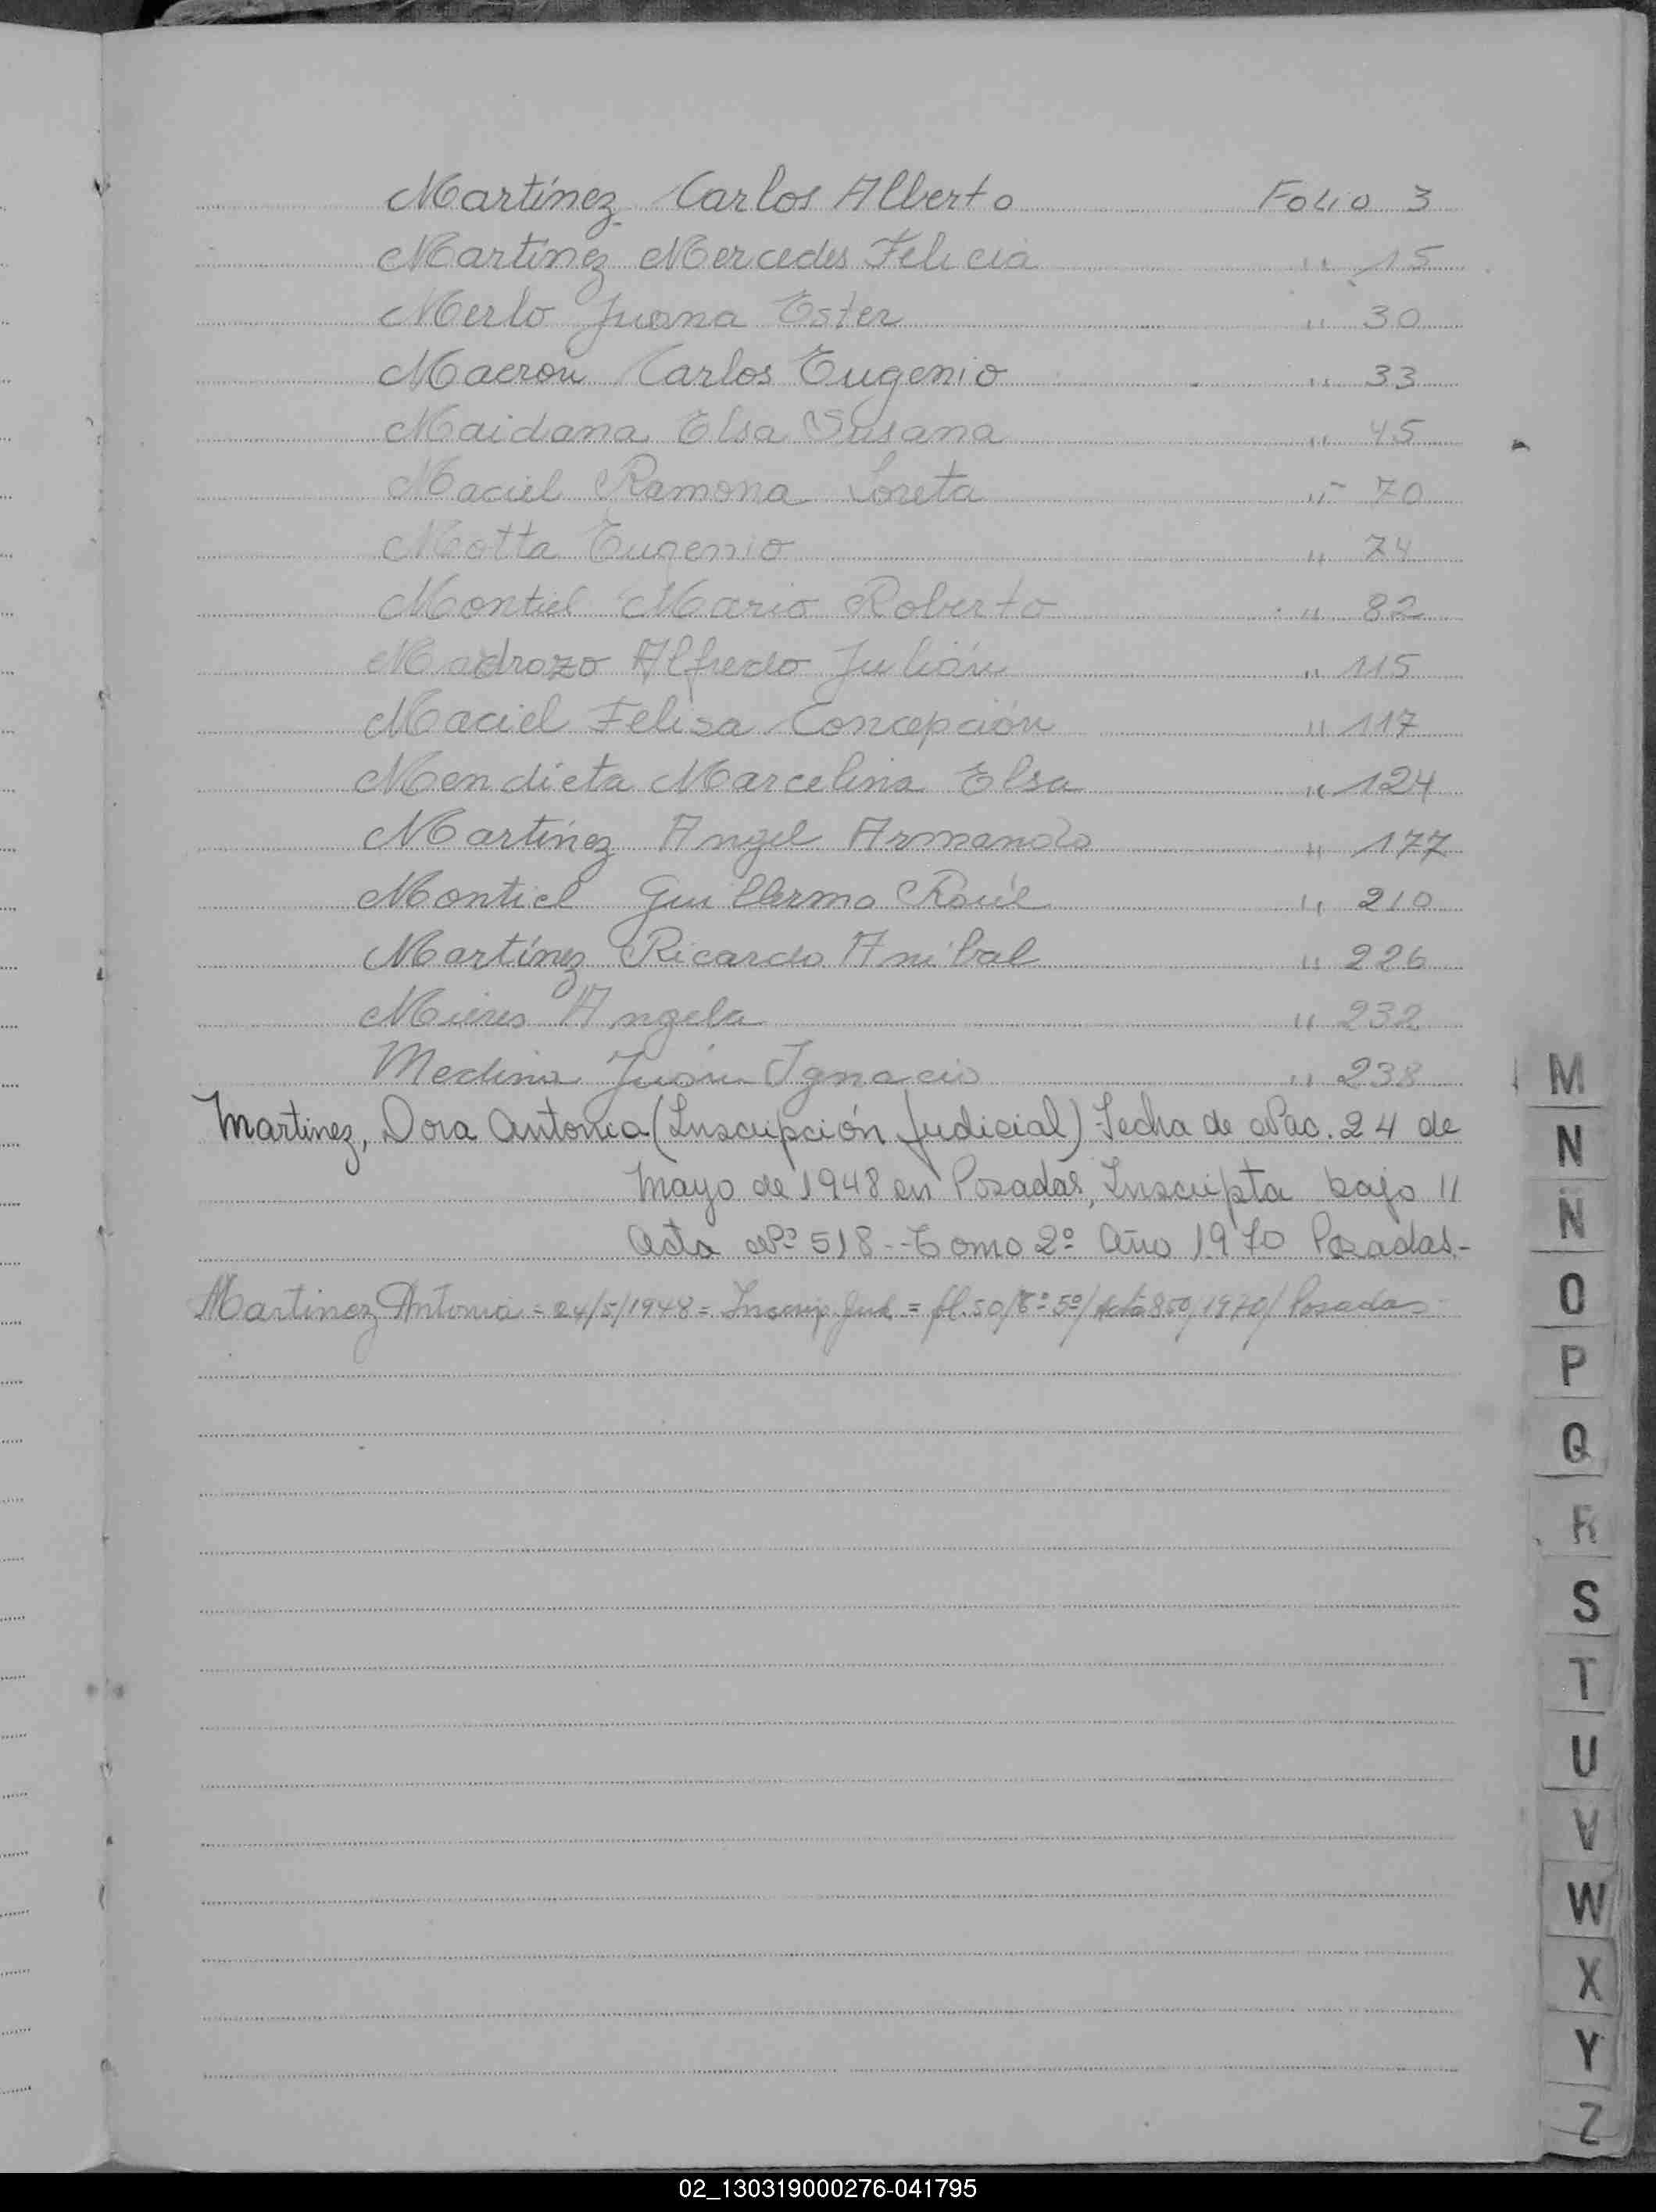 Martínez Carlos Alberto Folio 3
Martínez Mercedes Felicia " 15
Merlo Juana Ester " 30
Macrou Carlos Eugenio " 33
Maidana Elsa Susana " 45
Maciel Ramona Loreta " 70
Motta Eugenio " 74
Montiel Mario Roberto " 82
Madrazo Alfredo Julián " 115
Maciel Felisa Concepción " 117
Mendieta Marcelina Elsa " 124
Martínez Angel Armando " 177
Montiel Guillermo Raúl " 210
Martínez Ricardo Anibal " 226
Mieres Angela " 232
Medina Juan Ignacio " 238
Martinez, Dora Antonia (Inscripción Judicial) Fecha de Nac. 24 de
Mayo de 1948 en Posadas, Inscripta bajo "
Acta Nº 518 - Tomo 2º Año 1970 Posadas.-
Martinez Antonia = 24/5/1948 = Inscrip. Jud. = fl. 50/Tº 5º/Acta 850/1970/ Posadas
M
N
Ñ
O
P
Q
R
S
T
U
V
W
X
Y
Z
02_130319000276-041795